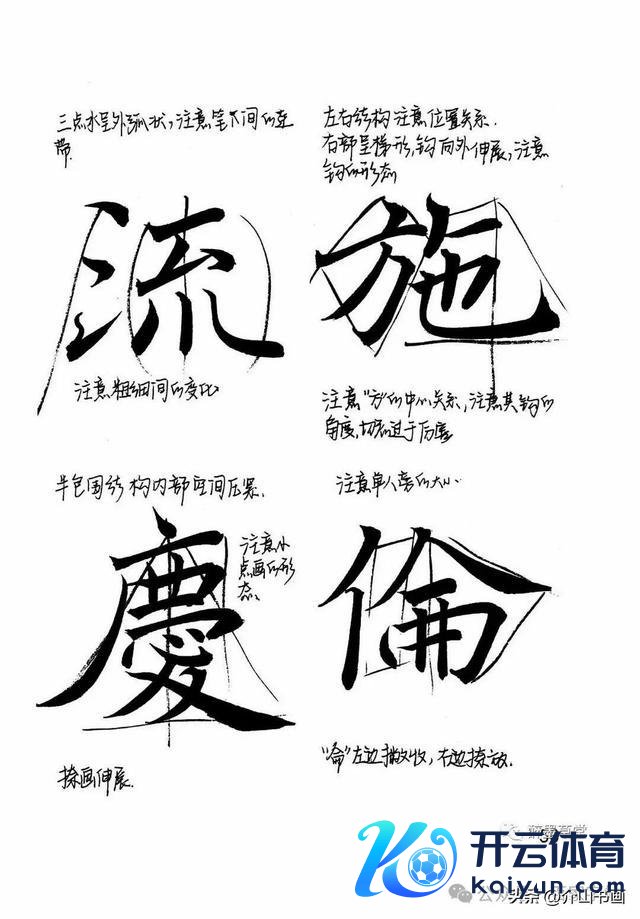 三点水呈外弧状,注意笔间的连
带.
左右结构注意位置关系.
右部呈梯形,钩向外伸展,注意
钩的形态
流
施
注意粗细间的变化
注意"方"的中心关系,注意其钩的
角度,切忌过于厉害
半包围结构内部空间压紧.
注意单人旁的大小.
慶
注意小
点画的形
态、
倫
捺画伸展.
"侖"左边撇收,右边捺放.
开云体育
kaiyun.com
头条@介山书画